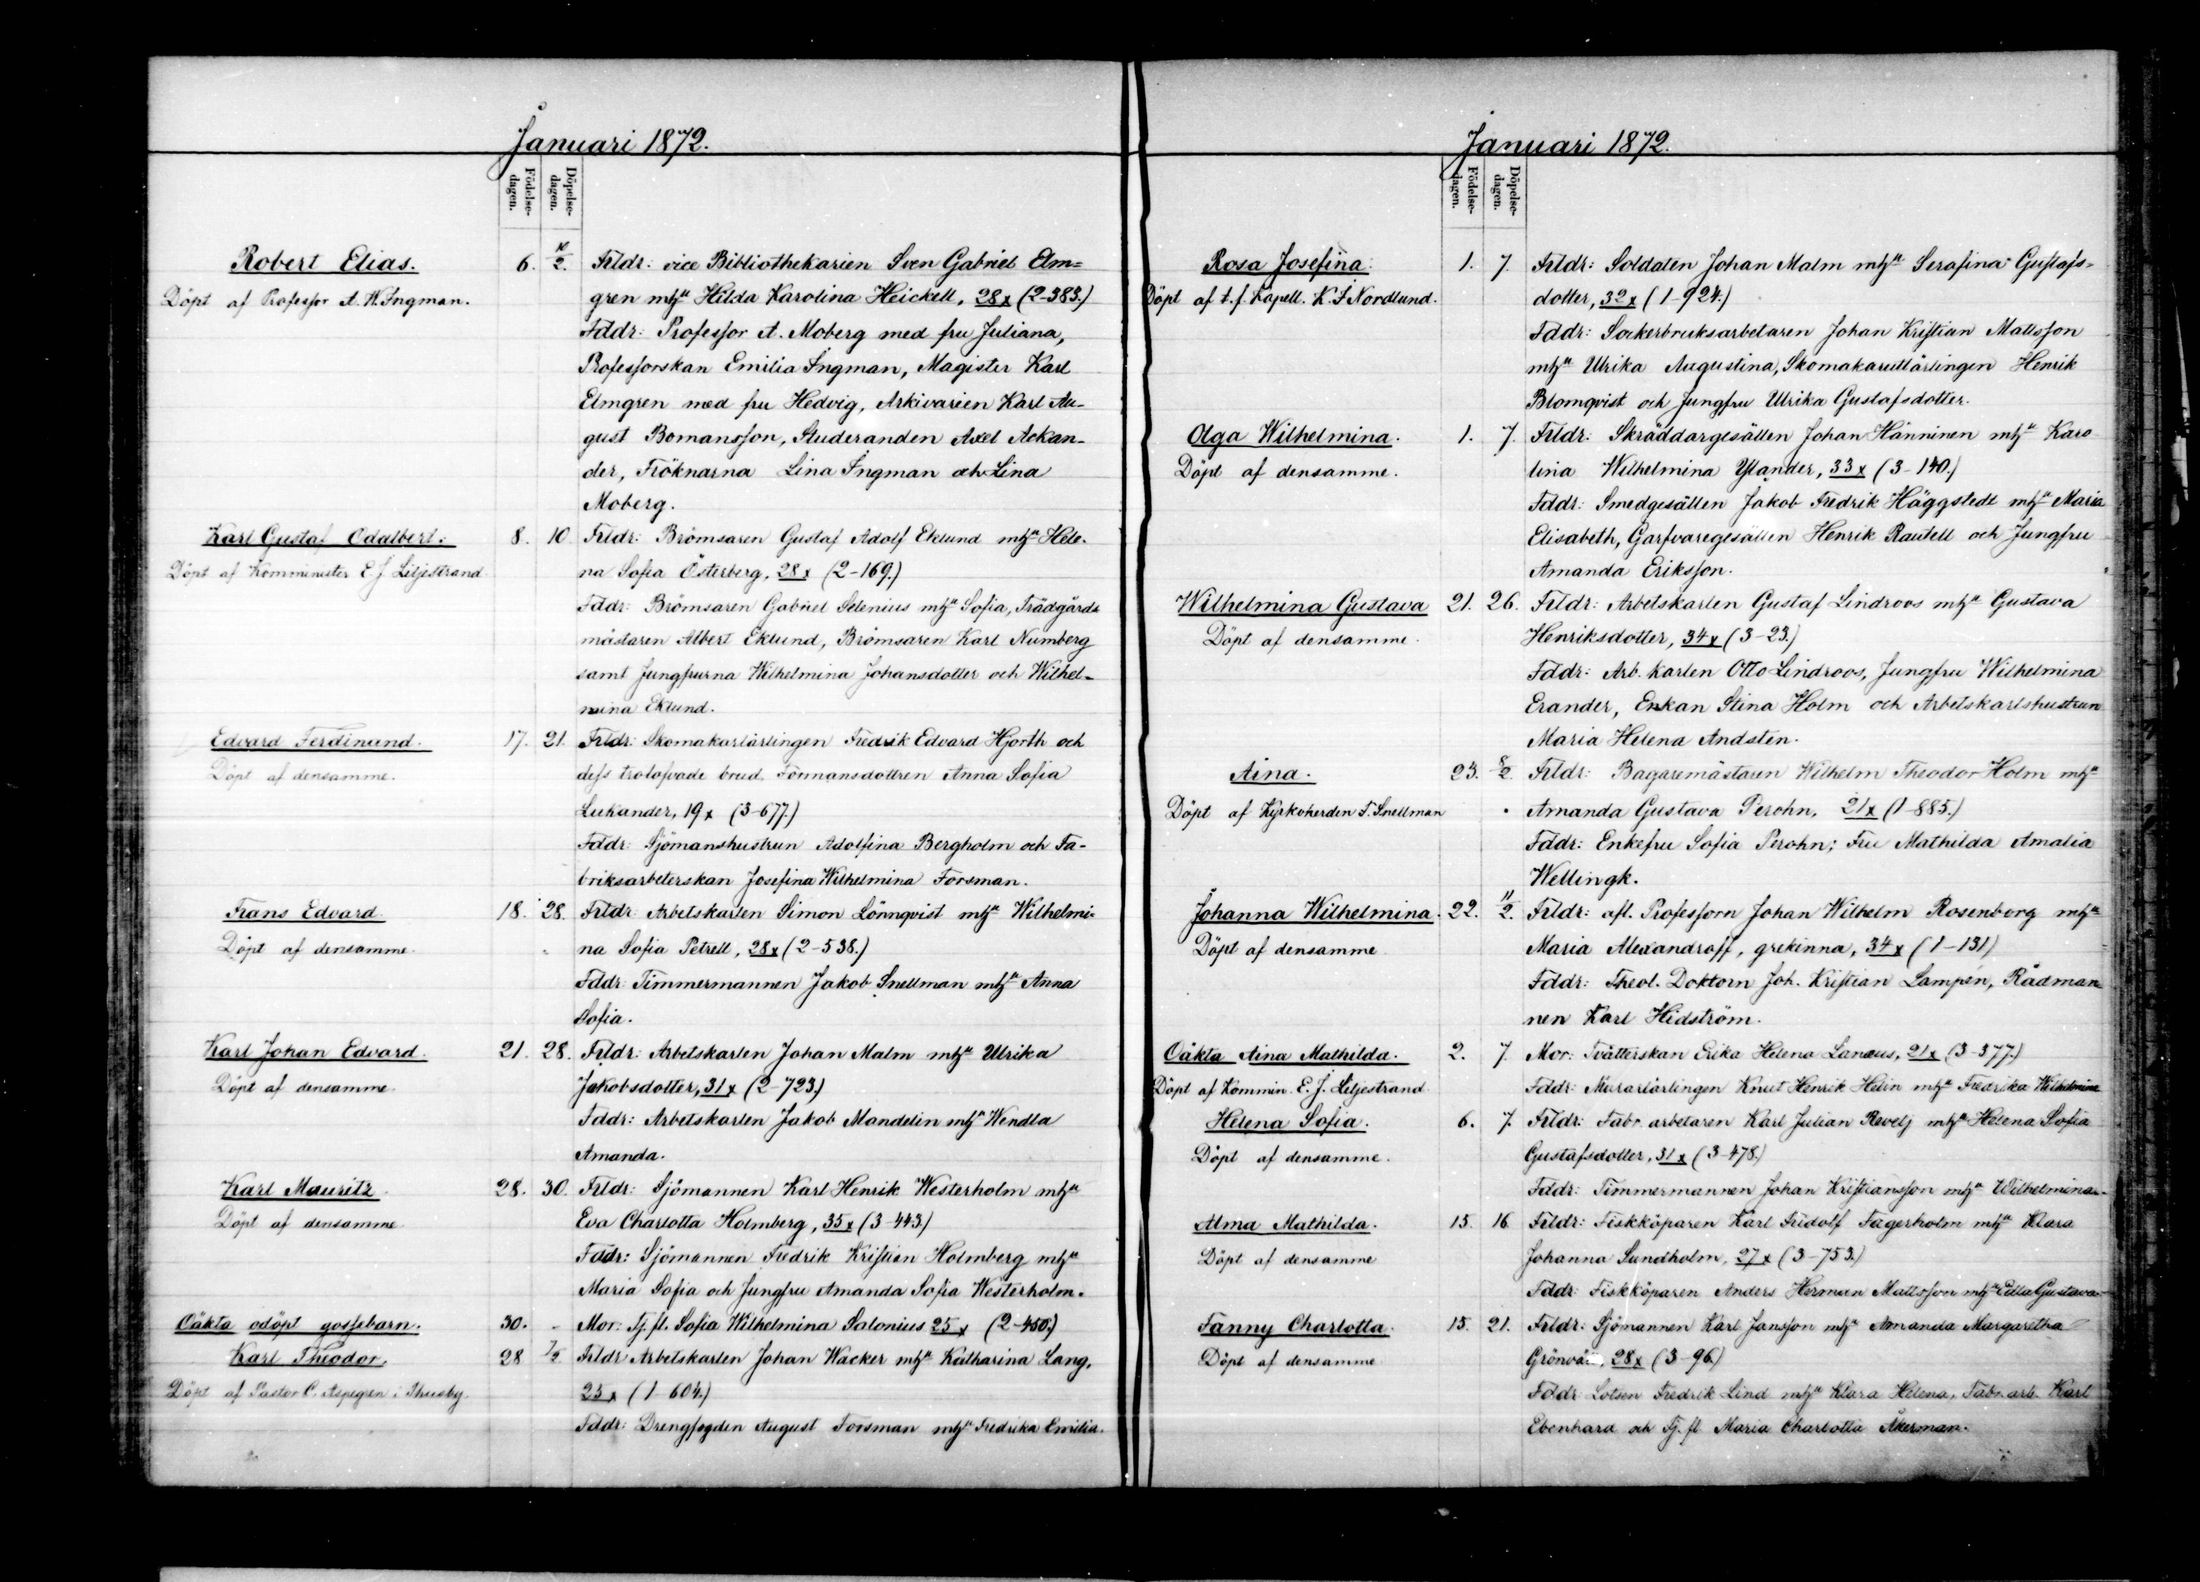 Januari 1872.
Födelse-
dagen.
Döpelse-
dagen.
Robert Elias. 6. 10/2. Frldr: vice Bibliothekarien Sven Gabriel Elm=
Döpt af Professor A. W. Ingman. gren mhu Hilda Karolina Heickell, 28x (2-383.)
Fddr: Professor A. Moberg med fru Juliana,
Professorskan Emilia Ingman, Magister Karl
Elmgren med fru Hedvig, Arkivarien Karl Au-
gust Bomansson, Studeranden Axel Ackan-
der, Fröknarna Lina Ingman och Lina
Moberg.
Karl Gustaf Odalbert. 8. 10 Frldr: Brömsaren Gustaf Adolf Eklund mhu Hele-
Döpt af Komminister E J. Liljestrand na Sofia Österberg, 28x (2-169.)
Fddr: Brömsaren Gabriel Selenius mhu Sofia, Trädgårds
mästaren Albert Eklund, Brömsaren Karl Numberg
samt Jungfrurna Wilhelmina Johansdotter och Wilhel-
mina Eklund.
Edvard Ferdinand. 17. 21. Frldr: Skomakarlärlingen Fredrik Edvard Hjorth och
Döpt af densamme. dess trolofvade brud Formansdottren Anna Sofia
Lukander, 19x (3-677.)
Fddr: Sjömanshustrun Adolfina Bergholm och Fa-
briksarbeterskan Josefina Wilhelmina Forsman.
Frans Edvard 18. 28. Frldr: Arbetskarlen Simon Lönnqvist mhu Wilhelmi-
Döpt af densamme. na Sofia Petrell, 28x (2-538.)
Fddr: Timmermannen Jakob Snellman mhu Anna
Sofia.
Karl Johan Edvard. 21. 28. Frldr: Arbetskarlen Johan Malm mhu Ulrika
Döpt af densamme. Jakobsdotter, 31x (2-723.)
Fddr: Arbetskarlen Jakob Mandelin mhu Wendla
Amanda.
Karl Mauritz. 28. 30. Frldr: Sjömannen Karl Henrik Westerholm mhu
Döpt af densamme. Eva Charlotta Holmberg, 35x (3-443.)
Fddr: Sjömannen Fredrik Kristian Holmberg mhu
Maria Sofia och Jungfru Amanda Sofia Westerholm.
Oäkta odöpt gossebarn. 30. - Mor: Tj. fl. Sofia Wilhelmina Salonius 25x (2-450.)
Karl Theodor. 28 7/2 Frldr Arbetskarlen Johan Wacker mhu Katharina Lang,
Döpt af Pastor C. Aspegren i Thusby. 25x (1-604.)
Fddr: Drengfogden August Forsman mhu Fredrika Emilia.
Januari 1872.
Födelse-
dagen.
Döpelse-
dagen.
Rosa Josefina. 1. 7. Frldr: Soldaten Johan Malm mhu Serafina Gustafs-
Döpt af t. f. Kapell. K. J Nordlund. dotter, 32x (1-924.)
Fddr: Sockerbruksarbetaren Johan Kristian Mattsson
mhu Ulrika Augustina, Skomakarelärlingen Henrik
Blomqvist och Jungfru Ulrika Gustafsdotter.
Olga Wilhelmina. 1. 7. Frldr: Skräddargesällen Johan Hänninen mhu Karo
Döpt af densamme. lina Wilhelmina Ylander, 33x (3-140.)
Fddr: Smedgesällen Jakob Fredrik Häggstedt mhu Maria
Elisabeth, Garfvaregesällen Henrik Rautell och Jungfru
Amanda Eriksson.
Wilhelmina Gustava 21. 26. Frldr: Arbetskarlen Gustaf Lindroos mhu Gustava
Döpt af densamme. Henriksdotter, 34x (3-23.)
Fddr: Arb. karlen Otto Lindroos, Jungfru Wilhelmina
Erander, Enkan Stina Holm och Arbetskarlshustrun
Maria Helena Andstén.
Aina. 23. 8/2. Frldr: Bagaremästaren Wilhelm Theodor Holm mhu
Döpt af Kyrkoherden T. Snellman Amanda Gustava Perohn, 21x (1-885.)
Fddr: Enkefru Sofia Perohn; Fru Mathilda Amalia
Wellingk.
Johanna Wilhelmina. 22. 11/2. Frldr: afl. Professorn Johan Wilhelm Rosenborg mhu
Döpt af densamme Maria Alexandroff, grekinna, 34x (1-131)
Fddr: Theol. Doktorn Joh. Kristian Lampén, Rådman-
nen Karl Hidström.
Oäkta Aina Mathilda. 2. 7. Mor: Tvätterskan Erika Helena Lanaus, 21x (3-377.)
Döpt af Kommin. E. J. Liljestrand. Fddr: Murarlärlingen Knut Henrik Helin mhu Fredrika Wilhelmina
Helena Sofia. 6. 7. Frldr: Fabr. arbetaren Karl Julian Revelj mhu Helena Sofia
Döpt af densamme. Gustafsdotter, 31x (3-478.)
Fddr: Timmermannen Johan Kristiansson mhu Wilhelmina.
Alma Mathilda. 15. 16. Frldr: Fiskköparen Karl Fridolf Fagerholm mhu Klara
Döpt af densamme Johanna Sundholm, 27x (3-753.)
Fddr: Fiskköparen Anders Herman Mattsson mhu Gustava
Fanny Charlotta. 15. 21. Frldr: Sjömannen Karl Jansson mhu Amanda Margaretha
Döpt af densamme 28x (3-96.)
Fddr: Lotsen Fredrik Lind mhu Klara Helena, Fabr. arb. Karl
Ebenhard och Tj. fl Maria Charlotta Åkerman.